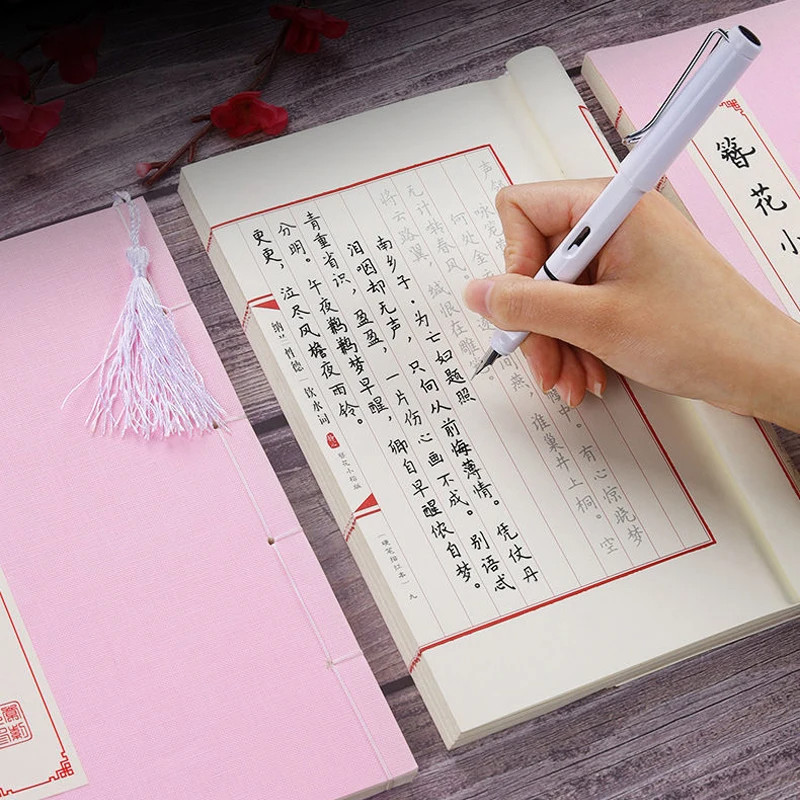 簪花小
声
咏笼莺
何处金 中。有心惊晓梦
无计啭春风。 逐 间燕,谁巢井上桐。空
将云路翼,缄恨在雕笼。
南乡子·为亡妇题照
泪咽却无声,只向从前悔薄情。凭仗丹
青重省识,盈盈,一片伤心画不成。别语忒
分明。午夜鹣鹣梦早醒,卿自早醒侬自梦。
更更,泣尽风檐夜雨铃。
纳兰性德 饮水词
簪花小楷
(硬笔描红本)
九